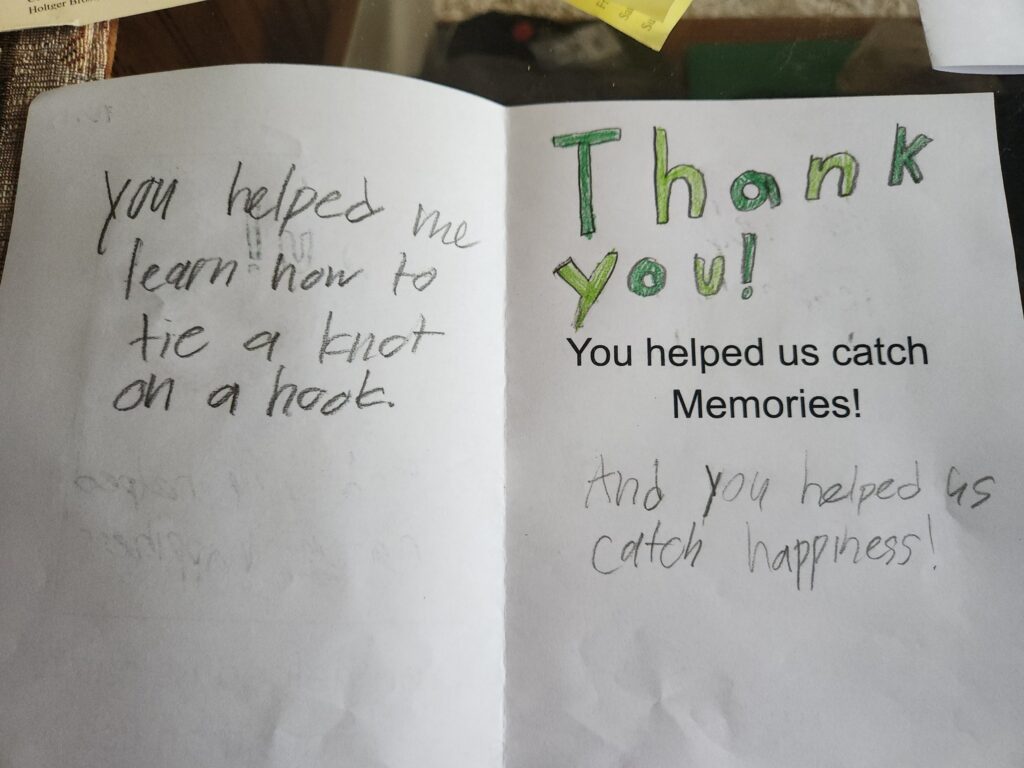 you helped me
learn how to
tie a knot
on a hook.
Thank
you!
You helped us catch
Memories!
And you helped us
catch happiness!